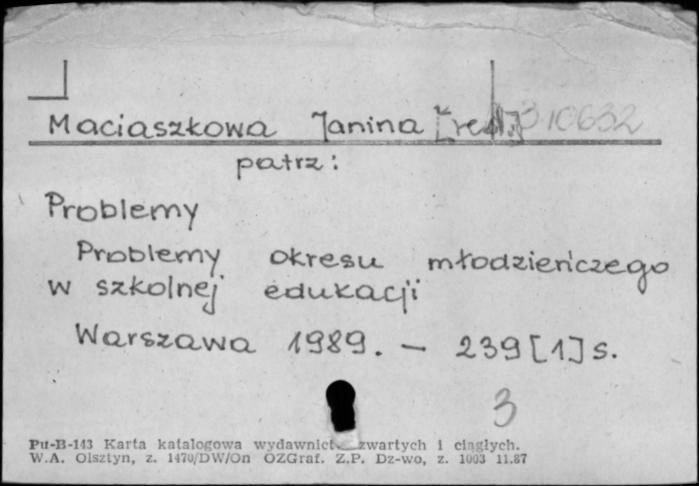 Maciaszkowa Janina [red.] 310632
patrz:
Problemy
Problemy okresu młodzieńczego
w szkolnej edukacji
Warszawa 1989. — 239[1]s.
3
Pu-B-143 Karta katalogowa wydawnict. zwartych i ciągłych.
W.A. Olsztyn, z. 1470/DW/On OZGraf. Z.P. Dz-wo, z. 1003 11.87